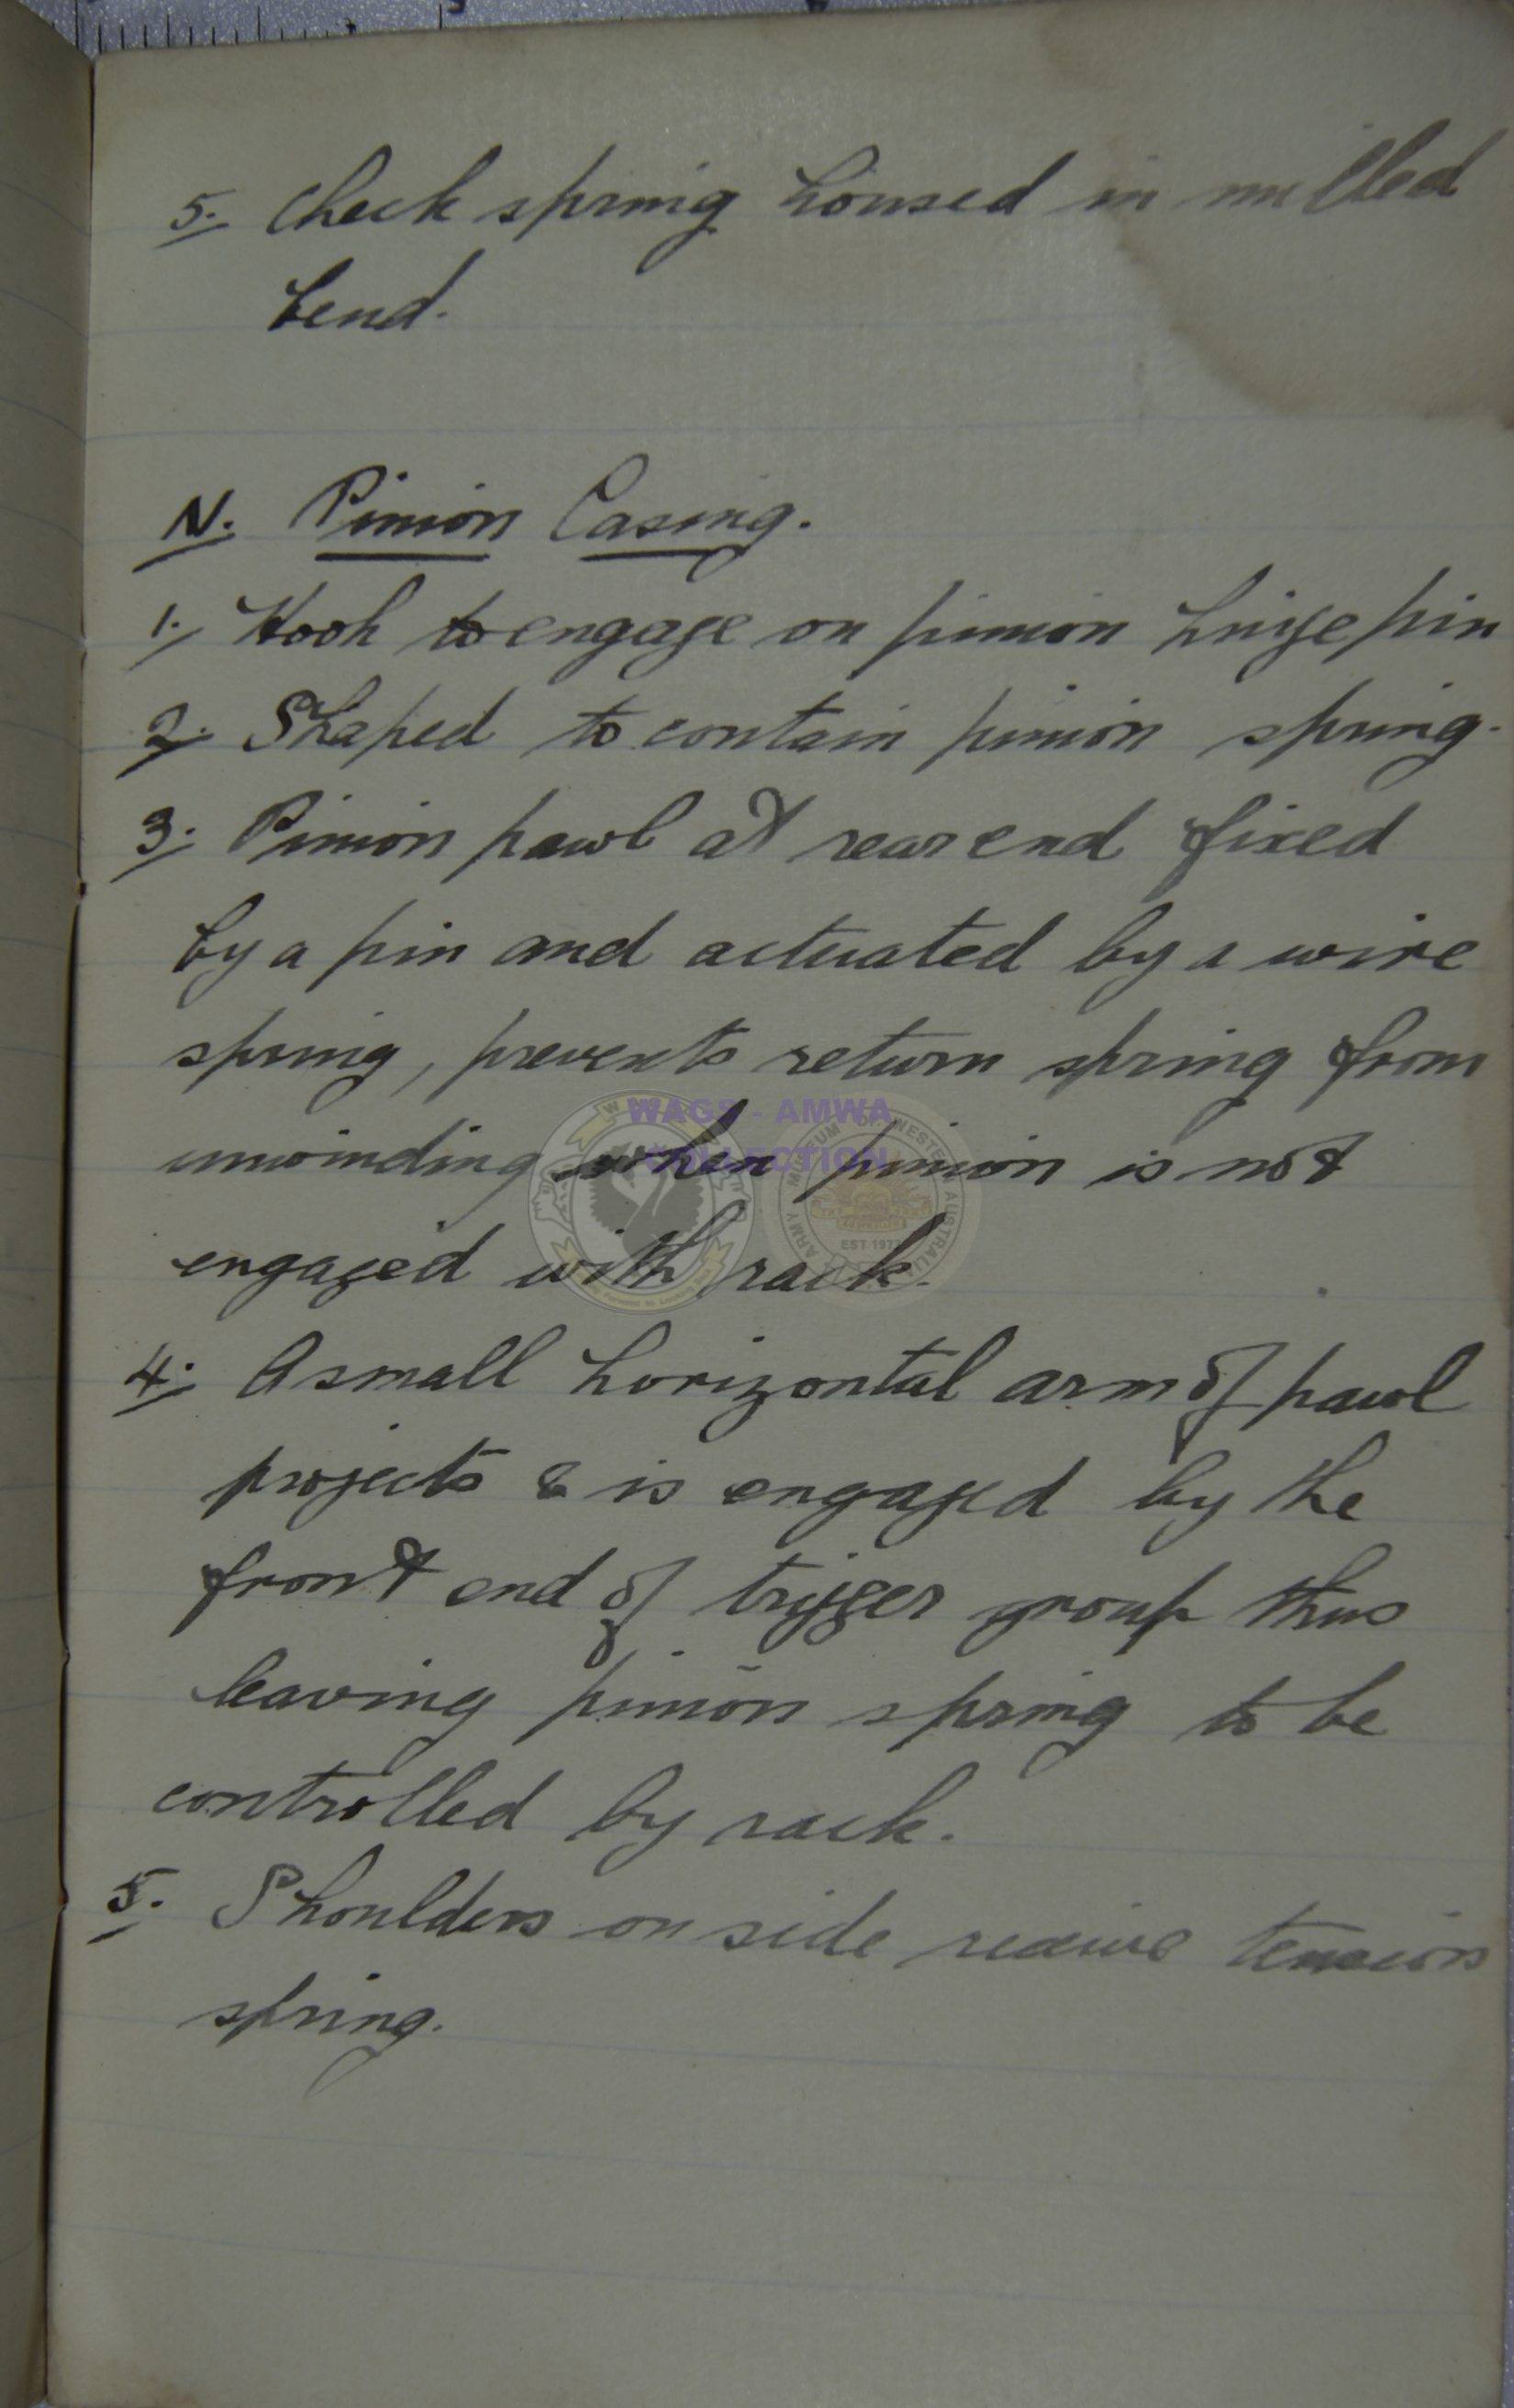 5. Check spring housed in milled
bend.
N. Pinion Casing.
1. Hook to engage on pinion hinge pin
2. Shaped to contain pinion spring.
3. Pinion pawl at rear end fixed
by a pin and actuated by a wire
spring, prevents return spring from
WAGS - AMWA
COLLECTION
unwinding when pinion is not
engaged with rack.
EST 1977
4. A small horizontal arm of pawl
projects & is engaged by the
front end of trigger group thus
leaving pinion spring to be
controlled by rack.
5. Shoulders on side receive tension
spring.